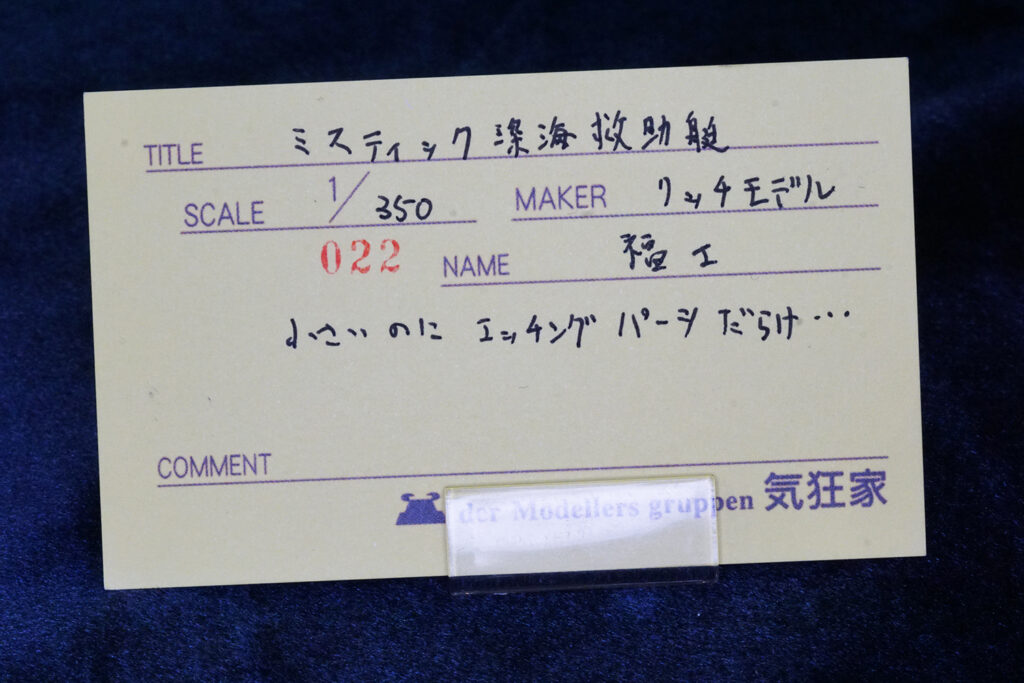 TITLE ミスティック深海救助艇
SCALE 1/350 MAKER リッチモデル
022 NAME 福工
小さいのに エッチングパーツだらけ…
COMMENT
der Modellers gruppen 気狂家